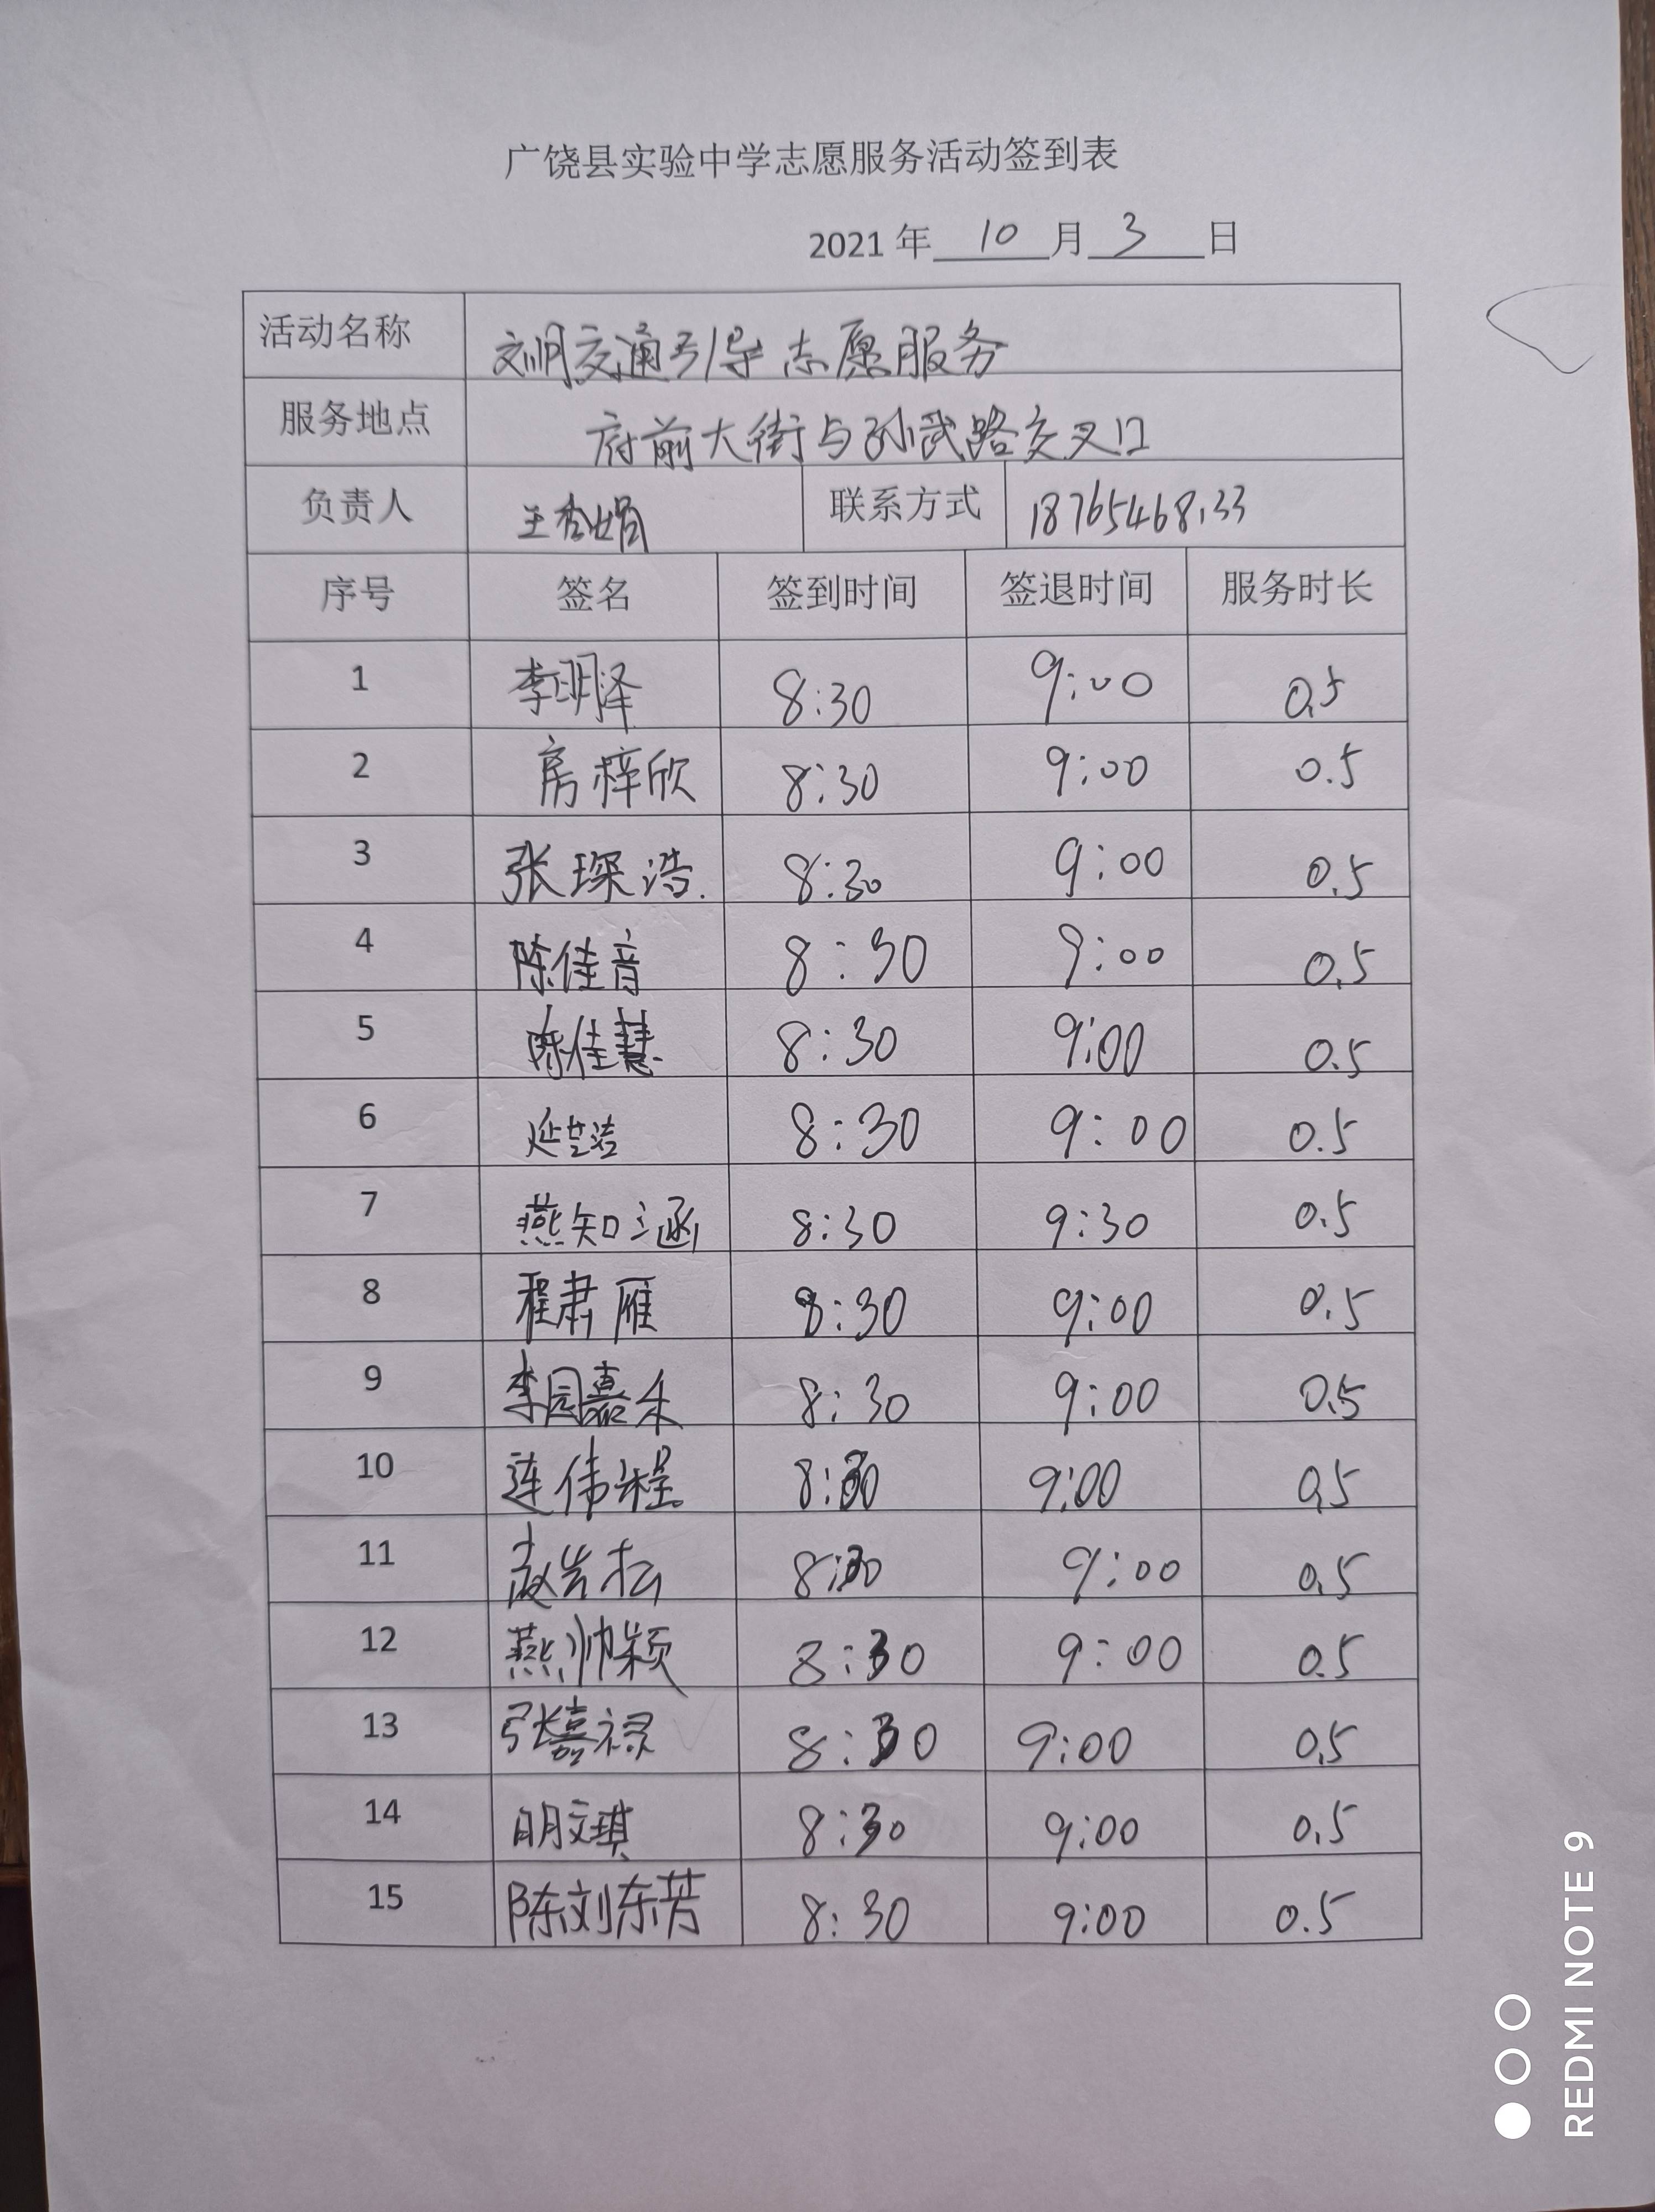 广饶县实验中学志愿服务活动签到表
2021 年 10 月 3 日
活动名称 文明交通引导志愿服务
服务地点 府前大街与孙武路交叉口
负责人 王秀娟 联系方式 18765468133
序号 签名 签到时间 签退时间 服务时长
1 李明泽 8:30 9:00 0.5
2 房梓欣 8:30 9:00 0.5
3 张琛浩. 8:30 9:00 0.5
4 陈佳音 8:30 9:00 0.5
5 陈佳慧 8:30 9:00 0.5
6 延芝洁 8:30 9:00 0.5
7 燕知涵 8:30 9:30 0.5
8 程肃雁 8:30 9:00 0.5
9 李园嘉禾 8:30 9:00 0.5
10 连伟程 8:30 9:00 0.5
11 赵岩松 8:30 9:00 0.5
12 燕帅颖 8:30 9:00 0.5
13 张嘉禄 8:30 9:00 0.5
14 明文琪 8:30 9:00 0.5
15 陈刘东芳 8:30 9:00 0.5
REDMI NOTE 9